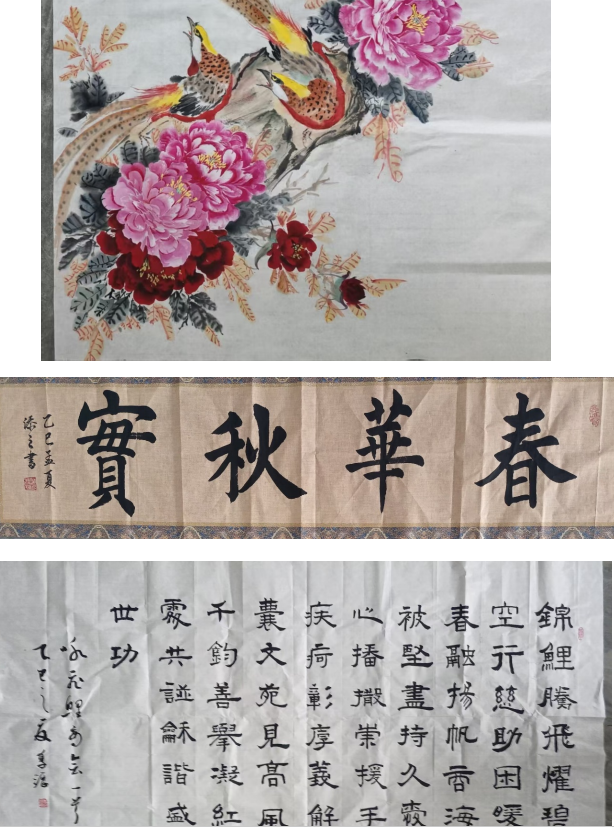 春華秋實
乙巳孟夏
添之書
錦鯉騰飛耀碧
空行慈助困暖
春融揚帆商海
被堅盡持久
心播撒崇援手
疾荷彰厚義解
囊文苑見高風
千鈞善舉凝紅
處共譜龢諧盛
世功
乙巳之夏